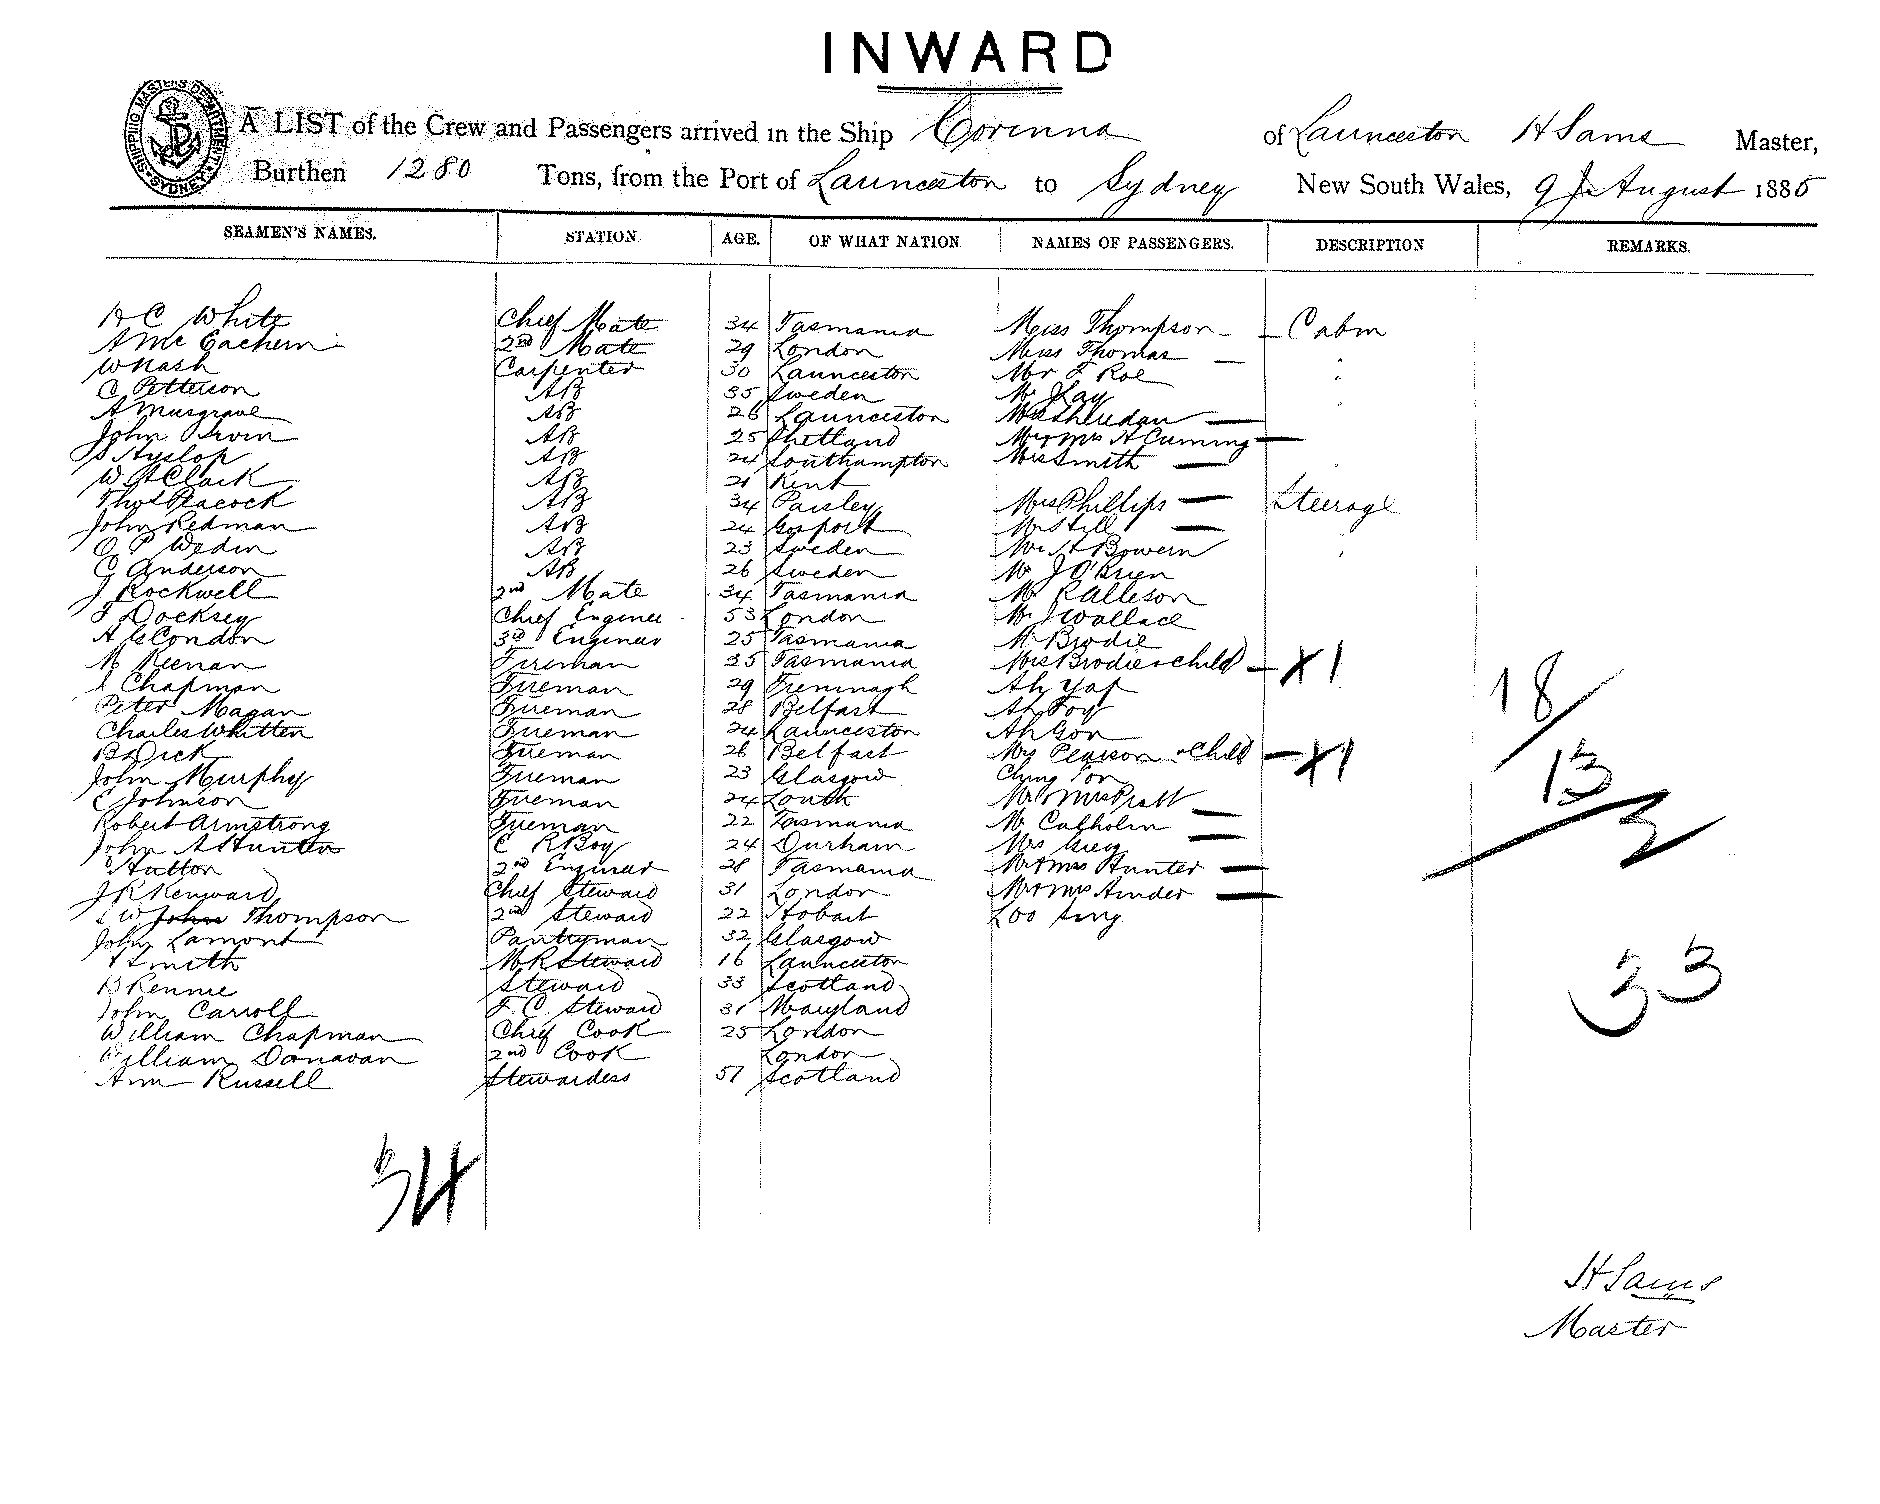 INWARD
SHIPPING MASTERS DEPARTMENT SYDNEY
A LIST of the Crew and Passengers arrived in the Ship Corinna of Launceston H Sams Master,
Burthen 1280 Tons, from the Port of Launceston to Sydney New South Wales, 9th August 1885
SEAMEN'S NAMES. STATION. AGE. OF WHAT NATION NAMES OF PASSENGERS. DESCRIPTION REMARKS.
H C White Chief Mate 34 Tasmania Miss Thompson Cabin
A Mc Eachern 2nd Mate 29 London Miss Thomas
W Nash Carpenter 30 Launceston Mr F Roe
C Petterson AB 35 Sweden Mr Kay
A Musgrave AB 26 Launceston Mrs Sheridan
John Irvin AB 25 Shetland Mr & Mrs H Cuming
J Hyslop AB 24 Southampton Miss Smith
W H Clark AB 21 Kent
Thos Peacock AB 34 Paisley Mrs Phillips Steerage
John Redman AB 24 Gosport Mrs Hill
O P Weden AB 23 Sweden Mr H Bowern
G Anderson AB 26 Sweden Mr J O'Brien
J Rockwell 2nd Mate 34 Tasmania Mr R Alleson
F Docksey Chief Engineer 53 London Mr J Wallace
A G Condon 3rd Engineer 25 Tasmania Mr Brodie
M Keenan Fireman 35 Tasmania Mrs Brodie & child X1
J Chapman Fireman 29 Ah Yap
Peter Magan Fireman 28 Belfast Ah Foy
Charles Whitten Fireman 24 Launceston Ah Gon
B Dick Fireman 26 Belfast Mrs Pearson & Child X1
John Murphy Fireman 23 Glasgow Ching Fon
C Johnson Fireman 24 Louth Mr & Mrs Pratt
Robert Armstrong Fireman 22 Tasmania Mr Calholm
John A Hunter E R Boy 24 Durham Mrs Grieg
Hutton 2nd Engineer 28 Tasmania Mr & Mrs Hunter
J R Kenward Chief Steward 31 London Mr & Mrs Ainder
W John Thompson 2nd Steward 22 Hobart Loo Sing
John Lamont Pantryman 32 Glasgow
Smith M R Steward 16 Launceston
B Rennie Steward 33 Scotland
John Carroll F. C. Steward 31 Maryland
William Chapman Chief Cook 25 London
William Donavan 2nd Cook London
Ann Russell Stewardess 51 Scotland
18
13
2
33
34
H Sams
Master